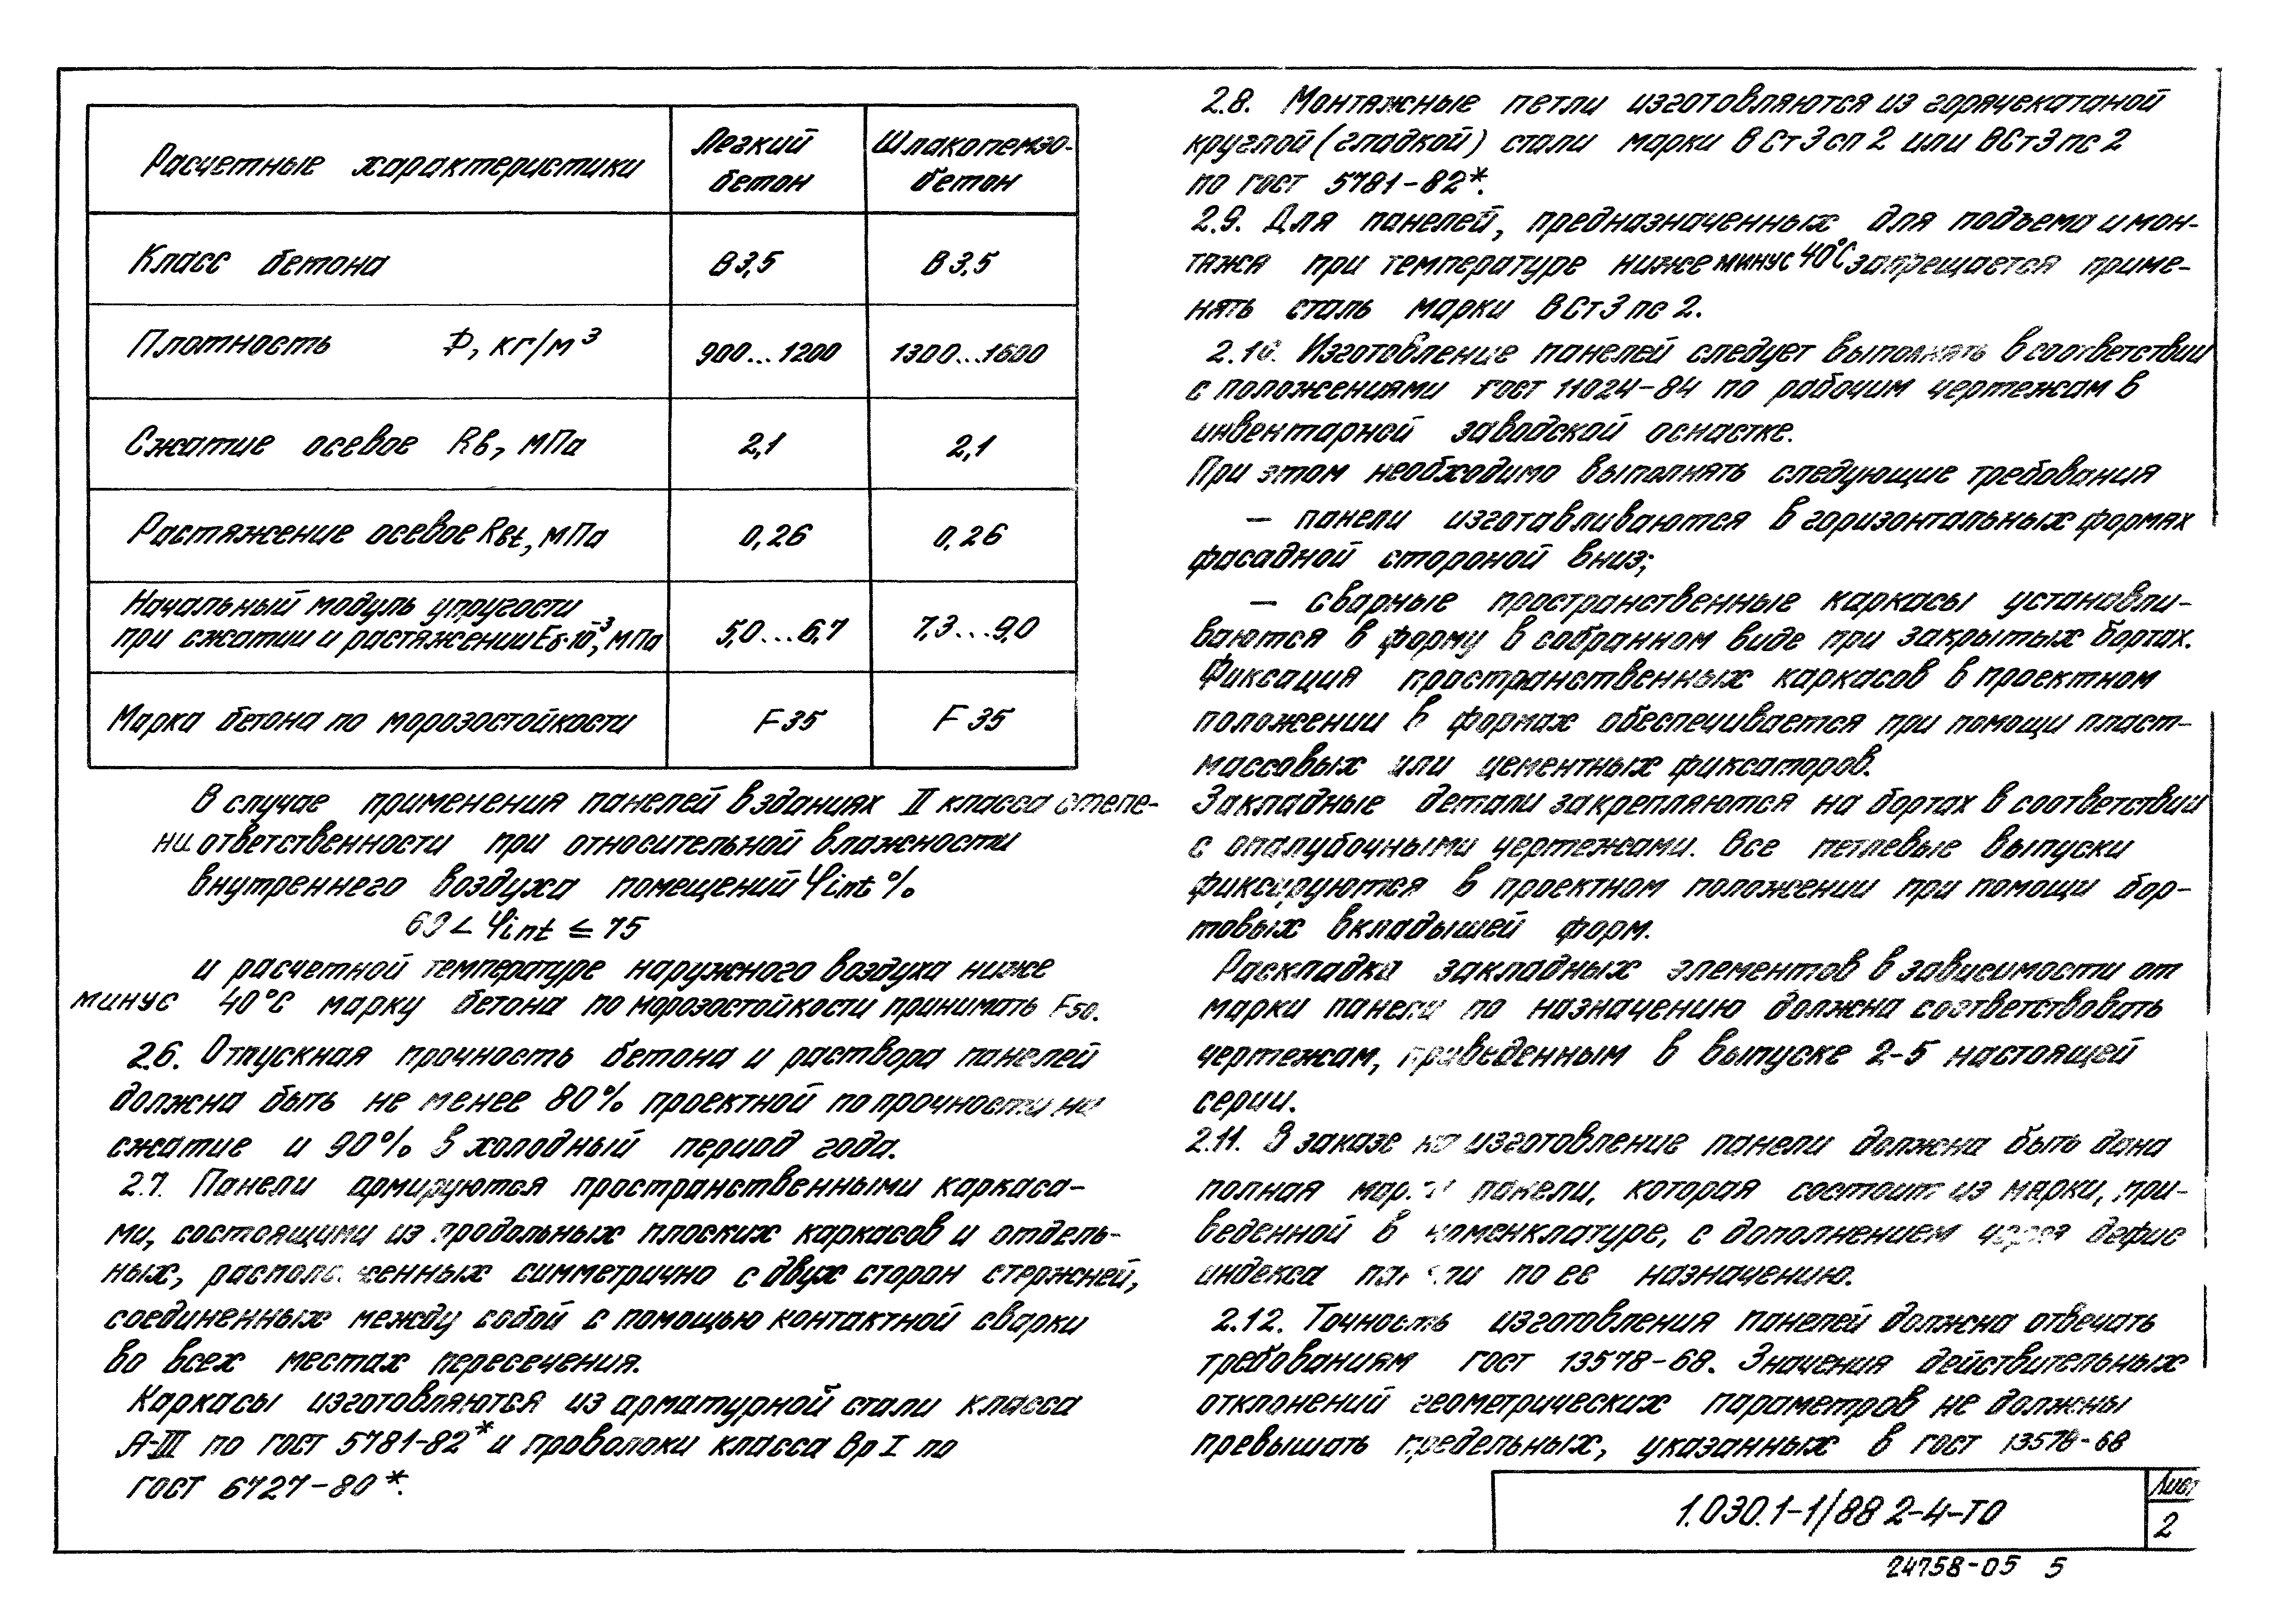 Расчетные характеристики
Легкий бетон
Шлакопемзо-бетон
Класс бетона В3,5 В3,5
Плотность Ф, кг/м³ 900...1200 1300...1600
Сжатие осевое Rв, МПа 2,1 2,1
Растяжение осевое Rвt, МПа 0,26 0,26
Начальный модуль упругости
при сжатии и растяжении Eб·10⁻³, МПа 5,0...6,7 7,3...9,0
Марка бетона по морозостойкости F35 F35
В случае применения панелей в зданиях II класса степе-
ни ответственности при относительной влажности
внутреннего воздуха помещений φint %
60 < φint ≤ 75
и расчетной температуре наружного воздуха ниже
минус 40°С марку бетона по морозостойкости принимать F50.
2.6. Отпускная прочность бетона и раствора панелей
должна быть не менее 80% проектной по прочности на
сжатие и 90% в холодный период года.
2.7. Панели армируются пространственными каркаса-
ми, состоящими из продольных плоских каркасов и отдель-
ных, расположенных симметрично с двух сторон стержней,
соединенных между собой с помощью контактной сварки
во всех местах пересечения.
Каркасы изготовляются из арматурной стали класса
А-III по ГОСТ 5781-82* и проволоки класса Вр I по
ГОСТ 6727-80*.
2.8. Монтажные петли изготовляются из горячекатаной
круглой (гладкой) стали марки ВСт3сп2 или ВСт3пс2
по ГОСТ 5781-82*.
2.9. Для панелей, предназначенных для подъема и мон-
тажа при температуре ниже минус 40°С запрещается приме-
нять сталь марки ВСт3пс2.
2.10. Изготовление панелей следует выполнять в соответствии
с положениями ГОСТ 11024-84 по рабочим чертежам в
инвентарной заводской оснастке.
При этом необходимо выполнять следующие требования
— панели изготавливаются в горизонтальных формах
фасадной стороной вниз;
— сварные пространственные каркасы устанавли-
ваются в форму в собранном виде при закрытых бортах.
Фиксация пространственных каркасов в проектном
положении в формах обеспечивается при помощи пласт-
массовых или цементных фиксаторов.
Закладные детали закрепляются на бортах в соответствии
с опалубочными чертежами. Все петлевые выпуски
фиксируются в проектном положении при помощи бор-
товых вкладышей форм.
Раскладка закладных элементов в зависимости от
марки панели по назначению должна соответствовать
чертежам, приведенным в выпуске 2-5 настоящей
серии.
2.11. В заказе на изготовление панели должна быть дана
полная марка панели, которая состоит из марки, при-
веденной в номенклатуре, с дополнением через дефис
индекса панели по ее назначению.
2.12. Точность изготовления панелей должна отвечать
требованиям ГОСТ 13578-68. Значения действительных
отклонений геометрических параметров не должны
превышать предельных, указанных в ГОСТ 13578-68
1.030.1-1/88 2-4-ТО
Лист
2
24758-05 5